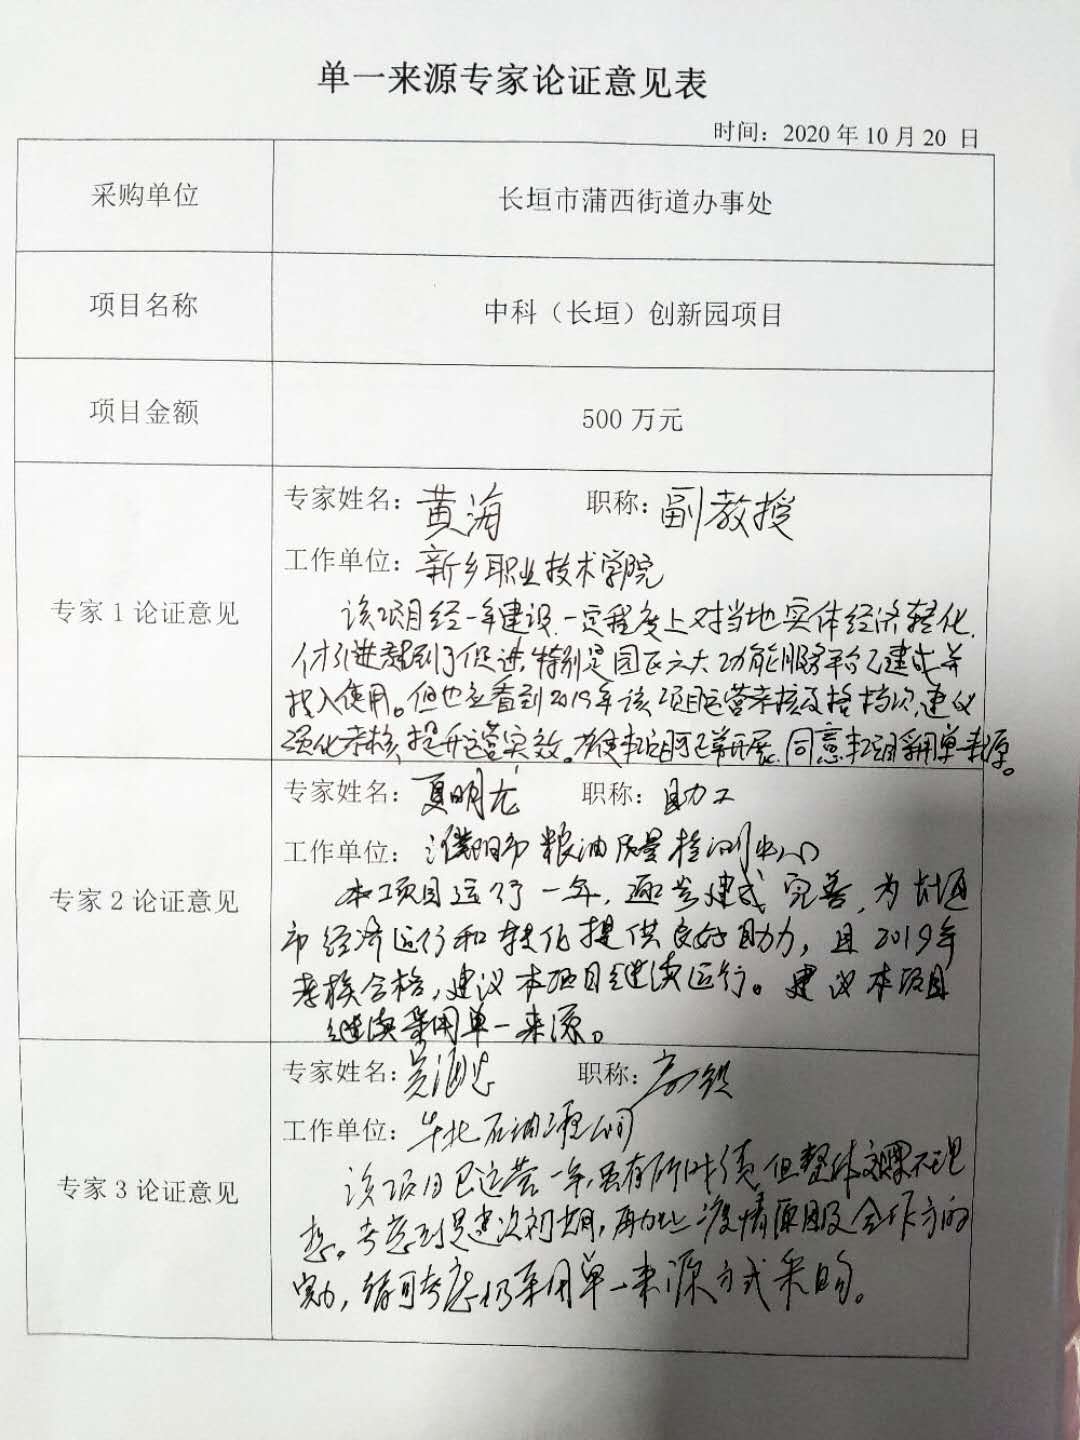 单一来源专家论证意见表
时间：2020年10月20 日
采购单位
长垣市蒲西街道办事处
项目名称
中科（长垣）创新园项目
项目金额
500万元
专家1论证意见
专家姓名：黄海 职称：副教授
工作单位：新乡职业技术学院
该项目经一年建设，一定程度上对当地实体经济转化，
引进起到了促进，特别是园区六大功能服务平台已建成并
投入使用。但也应看到2019年该项目运营考核及格档次，建议
强化考核，提升运营实效。本项目开展，同意本项目采用单一来源。
专家2论证意见
专家姓名：夏明龙 职称：助工
工作单位：濮阳市粮油质量检测中心
本项目运行一年，逐步建成完善，为长垣
市经济运行和转化提供良好助力，且2019年
考核合格，建议本项目继续运行。建议本项目
继续采用单一来源。
专家3论证意见
专家姓名：吴 职称：高级
工作单位：华北石油工程公司
该项目已运营一年，虽有所成绩，但整体效果不理
想。考虑到是建设初期，再加上疫情原因及合作方的
实力，可考虑仍采用单一来源方式采购。